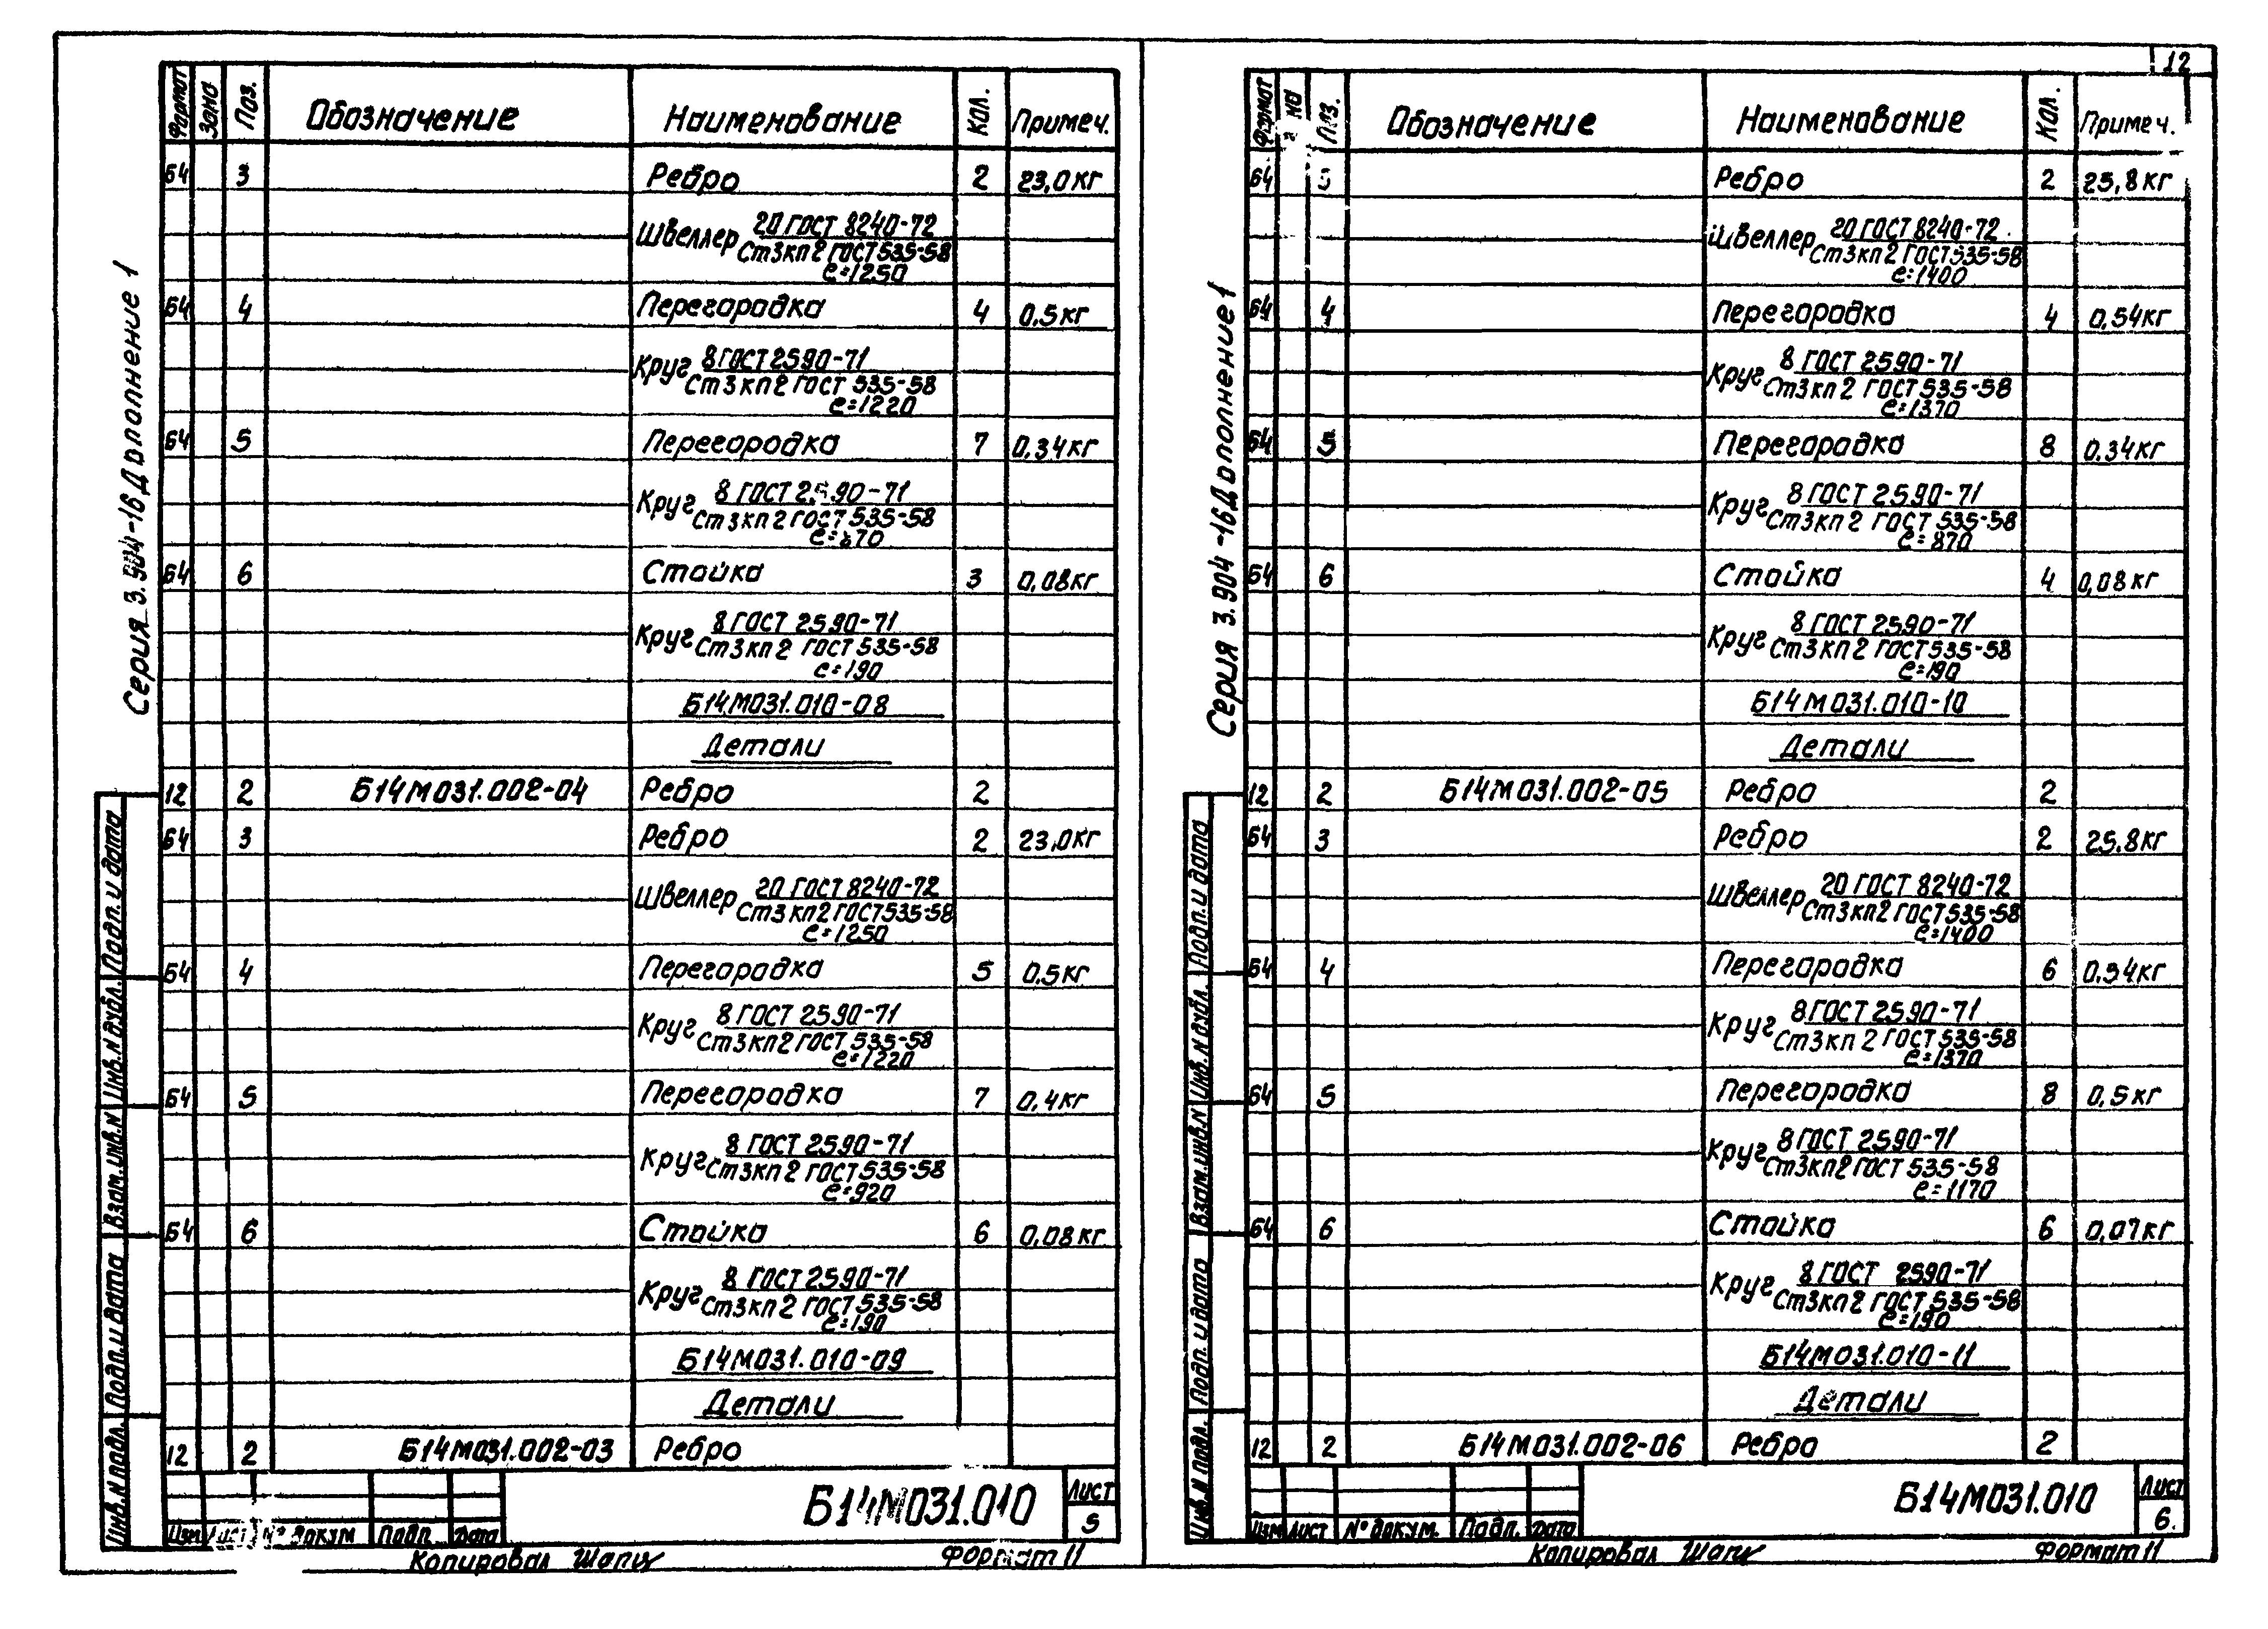 12
Серия 3.904-16 Дополнение 1
Формат Зона Поз. Обозначение Наименование Кол. Примеч.
Б4 3 Ребро 2 23,0кг
Швеллер 20 ГОСТ 8240-72
Ст3кп2 ГОСТ 535-58
ℓ=1250
Б4 4 Перегородка 4 0.5кг
Круг 8 ГОСТ 2590-71
Ст3кп2 ГОСТ 535-58
ℓ=1220
Б4 5 Перегородка 7 0,34кг
Круг 8 ГОСТ 2590-71
Ст3кп2 ГОСТ 535-58
ℓ=870
Б4 6 Стойка 3 0,08кг
Круг 8 ГОСТ 2590-71
Ст3кп2 ГОСТ 535-58
ℓ=190
Б14М031.010-08
Детали
12 2 Б14М031.002-04 Ребро 2
Б4 3 Ребро 2 23,0кг
Швеллер 20 ГОСТ 8240-72
Ст3кп2 ГОСТ 535-58
ℓ=1250
Б4 4 Перегородка 5 0.5кг
Круг 8 ГОСТ 2590-71
Ст3кп2 ГОСТ 535-58
ℓ=1220
Б4 5 Перегородка 7 0,4кг
Круг 8 ГОСТ 2590-71
Ст3кп2 ГОСТ 535-58
ℓ=920
Б4 6 Стойка 6 0,08кг
Круг 8 ГОСТ 2590-71
Ст3кп2 ГОСТ 535-58
ℓ=190
Б14М031.010-09
Детали
12 2 Б14М031.002-03 Ребро
Инв.N подл. Подп. и дата Взам.инв.N Инв.N дубл. Подп. и дата
Изм Лист N° докум Подп. Дата
Б14М031.010
Лист
5
Копировал Формат 11
Серия 3.904-16 Дополнение 1
Формат Поз. Обозначение Наименование Кол. Примеч.
Б4 3 Ребро 2 25,8кг
Швеллер 20 ГОСТ 8240-72
Ст3кп2 ГОСТ 535-58
ℓ=1400
Б4 4 Перегородка 4 0,54кг
Круг 8 ГОСТ 2590-71
Ст3кп2 ГОСТ 535-58
ℓ=1370
Б4 5 Перегородка 8 0,34кг
Круг 8 ГОСТ 2590-71
Ст3кп2 ГОСТ 535-58
ℓ=870
Б4 6 Стойка 4 0,08кг
Круг 8 ГОСТ 2590-71
Ст3кп2 ГОСТ 535-58
ℓ=190
Б14М031.010-10
Детали
12 2 Б14М031.002-05 Ребро 2
Б4 3 Ребро 2 25.8кг
Швеллер 20 ГОСТ 8240-72
Ст3кп2 ГОСТ 535-58
ℓ=1400
Б4 4 Перегородка 6 0,54кг
Круг 8 ГОСТ 2590-71
Ст3кп2 ГОСТ 535-58
ℓ=1370
Б4 5 Перегородка 8 0,5кг
Круг 8 ГОСТ 2590-71
Ст3кп2 ГОСТ 535-58
ℓ=1170
Б4 6 Стойка 6 0,07кг
Круг 8 ГОСТ 2590-71
Ст3кп2 ГОСТ 535-58
ℓ=190
Б14М031.010-11
Детали
12 2 Б14М031.002-06 Ребро 2
Инв.N подл. Подп. и дата Взам.инв.N Инв.N дубл. Подп. и дата
Изм Лист N° докум. Подп. Дата
Б14М031.010
Лист
6
Копировал Формат 11